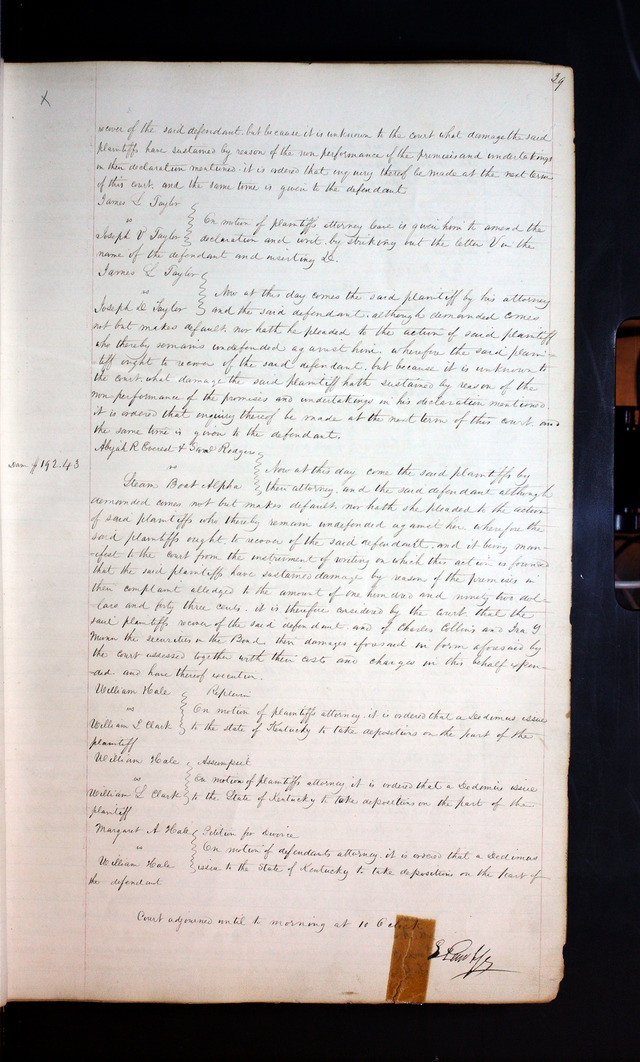 29
X
recover of the said defendant. but because it is unknown to the court what damage the said
plaintiffs have sustained by reason of the non performance of the promises and undertakings
in their declaration mentioned. it is ordered that enquiry thereof be made at the next term
of this court. and the same time is given to the defendant
James L Taylor
vs
Joseph V Taylor
On motion of plaintiffs attorney leave is given him to amend the
declaration and writ. by striking out the letter V in the
name of the defendant and inserting D.
James L Taylor
vs
Joseph D Taylor
Now at this day comes the said plaintiff by his attorney
and the said defendant. although demanded comes
not but makes default. nor hath he pleaded to the action of said plaintiff
who thereby remains undefended against him. wherefore the said plain-
-tiff ought to recover of the said defendant. but because it is unknown to
the court. what damage the said plaintiff hath sustained by reason of the
non performance of the promises and undertakings in his declaration mentioned.
it is ordered that enquiry thereof be made at the next term of this court. and
the same time is given to the defendant.
Abijah R Everest & Saml Rodgers
vs
Steam Boat Alpha
Dam $192.43
Now at this day come the said plaintiffs by
their attorney. and the said defendant although
demanded comes not but makes default. nor hath she pleaded to the action
of said plaintiffs who thereby remain undefended against her. wherefore the
said plaintiffs ought to recover of the said defendant. and it being man-
-ifest to the court from the instrument of writing on which this action is founded
that the said plaintiffs have sustained damage by reason of the premises in
their complaint alledged to the amount of one hundred and ninety two dol
lars and forty three cents. it is therefore considered by the court that the
said plaintiffs recover of the said defendant. and of Charles Collins and Ira Y
Munn the securities in the Bond. their damages aforesaid in form aforesaid by
the court assessed together with their costs and charges in this behalf expen-
-ded. and have thereof execution.
William Hale
vs
William L Clark
Replevin
On motion of plaintiffs attorney. it is ordered that a Dedimus issue
to the state of Kentucky to take depositions on the part of the
plaintiff
William Hale
vs
William L Clark
Assumpsit
On motion of plaintiffs attorney it is ordered that a Dedimus issue
to the State of Kentucky to take depositions on the part of the
plaintiff
Margaret A Hale
vs
William Hale
Petition for divorce
On motion of defendants attorney. it is ordered that a Dedimus
issue to the State of Kentucky to take depositions on the part of
the defendant
Court adjourned until to morning at 10 O clock